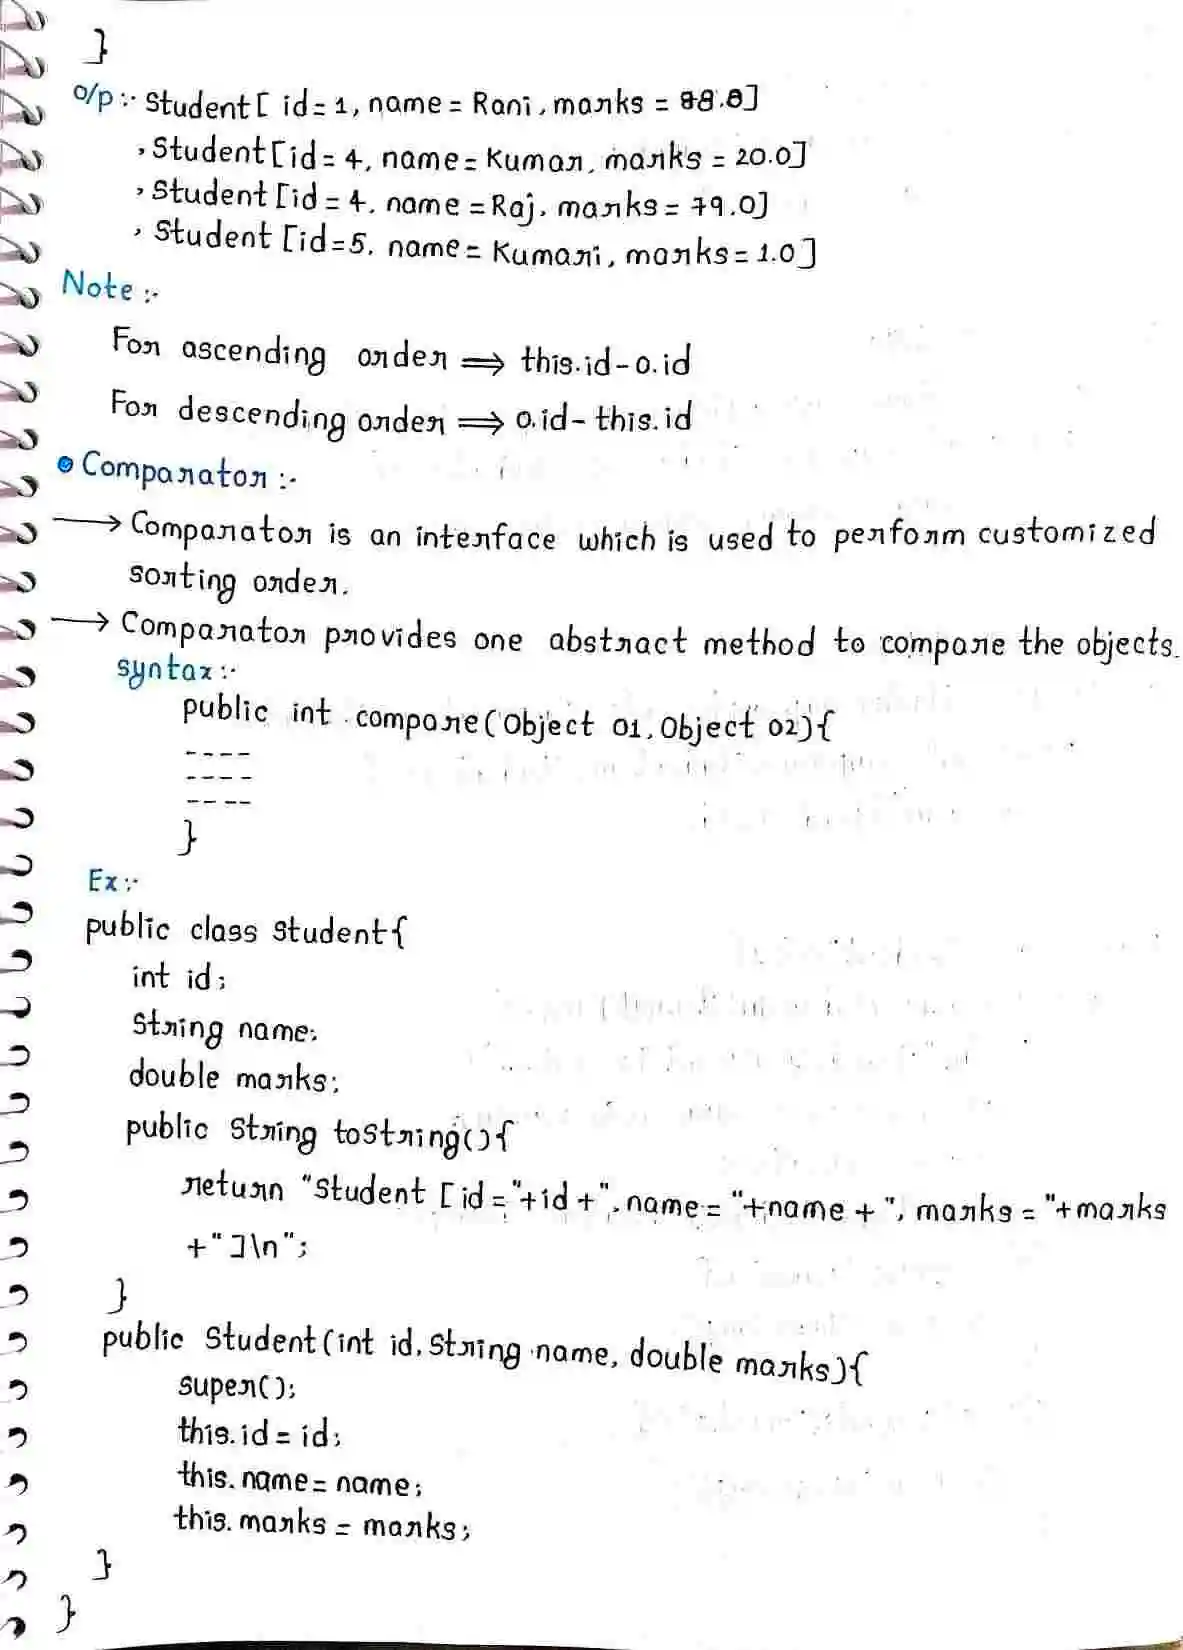 }
o/p :- Student[ id= 1, name = Rani, marks = 88.0]
, Student[id = 4, name = Kumar, marks = 20.0]
, Student [id = 4, name = Raj, marks = 79.0]
, Student [id=5, name = Kumari, marks = 1.0]
Note :-
For ascending order ⟹ this.id-o.id
For descending order ⟹ o.id- this.id
Comparator :-
→ Comparator is an interface which is used to perform customized
sorting order.
→ Comparator provides one abstract method to compare the objects.
syntax :-
public int compare(Object o1, Object o2){
----
----
----
}
Ex :-
public class Student{
int id;
String name;
double marks;
public String toString(){
return "Student [ id = "+id +", name = "+name + ", marks = "+marks
+" ]\n";
}
public Student(int id, String name, double marks){
super();
this.id = id;
this.name = name;
this.marks = marks;
}
}